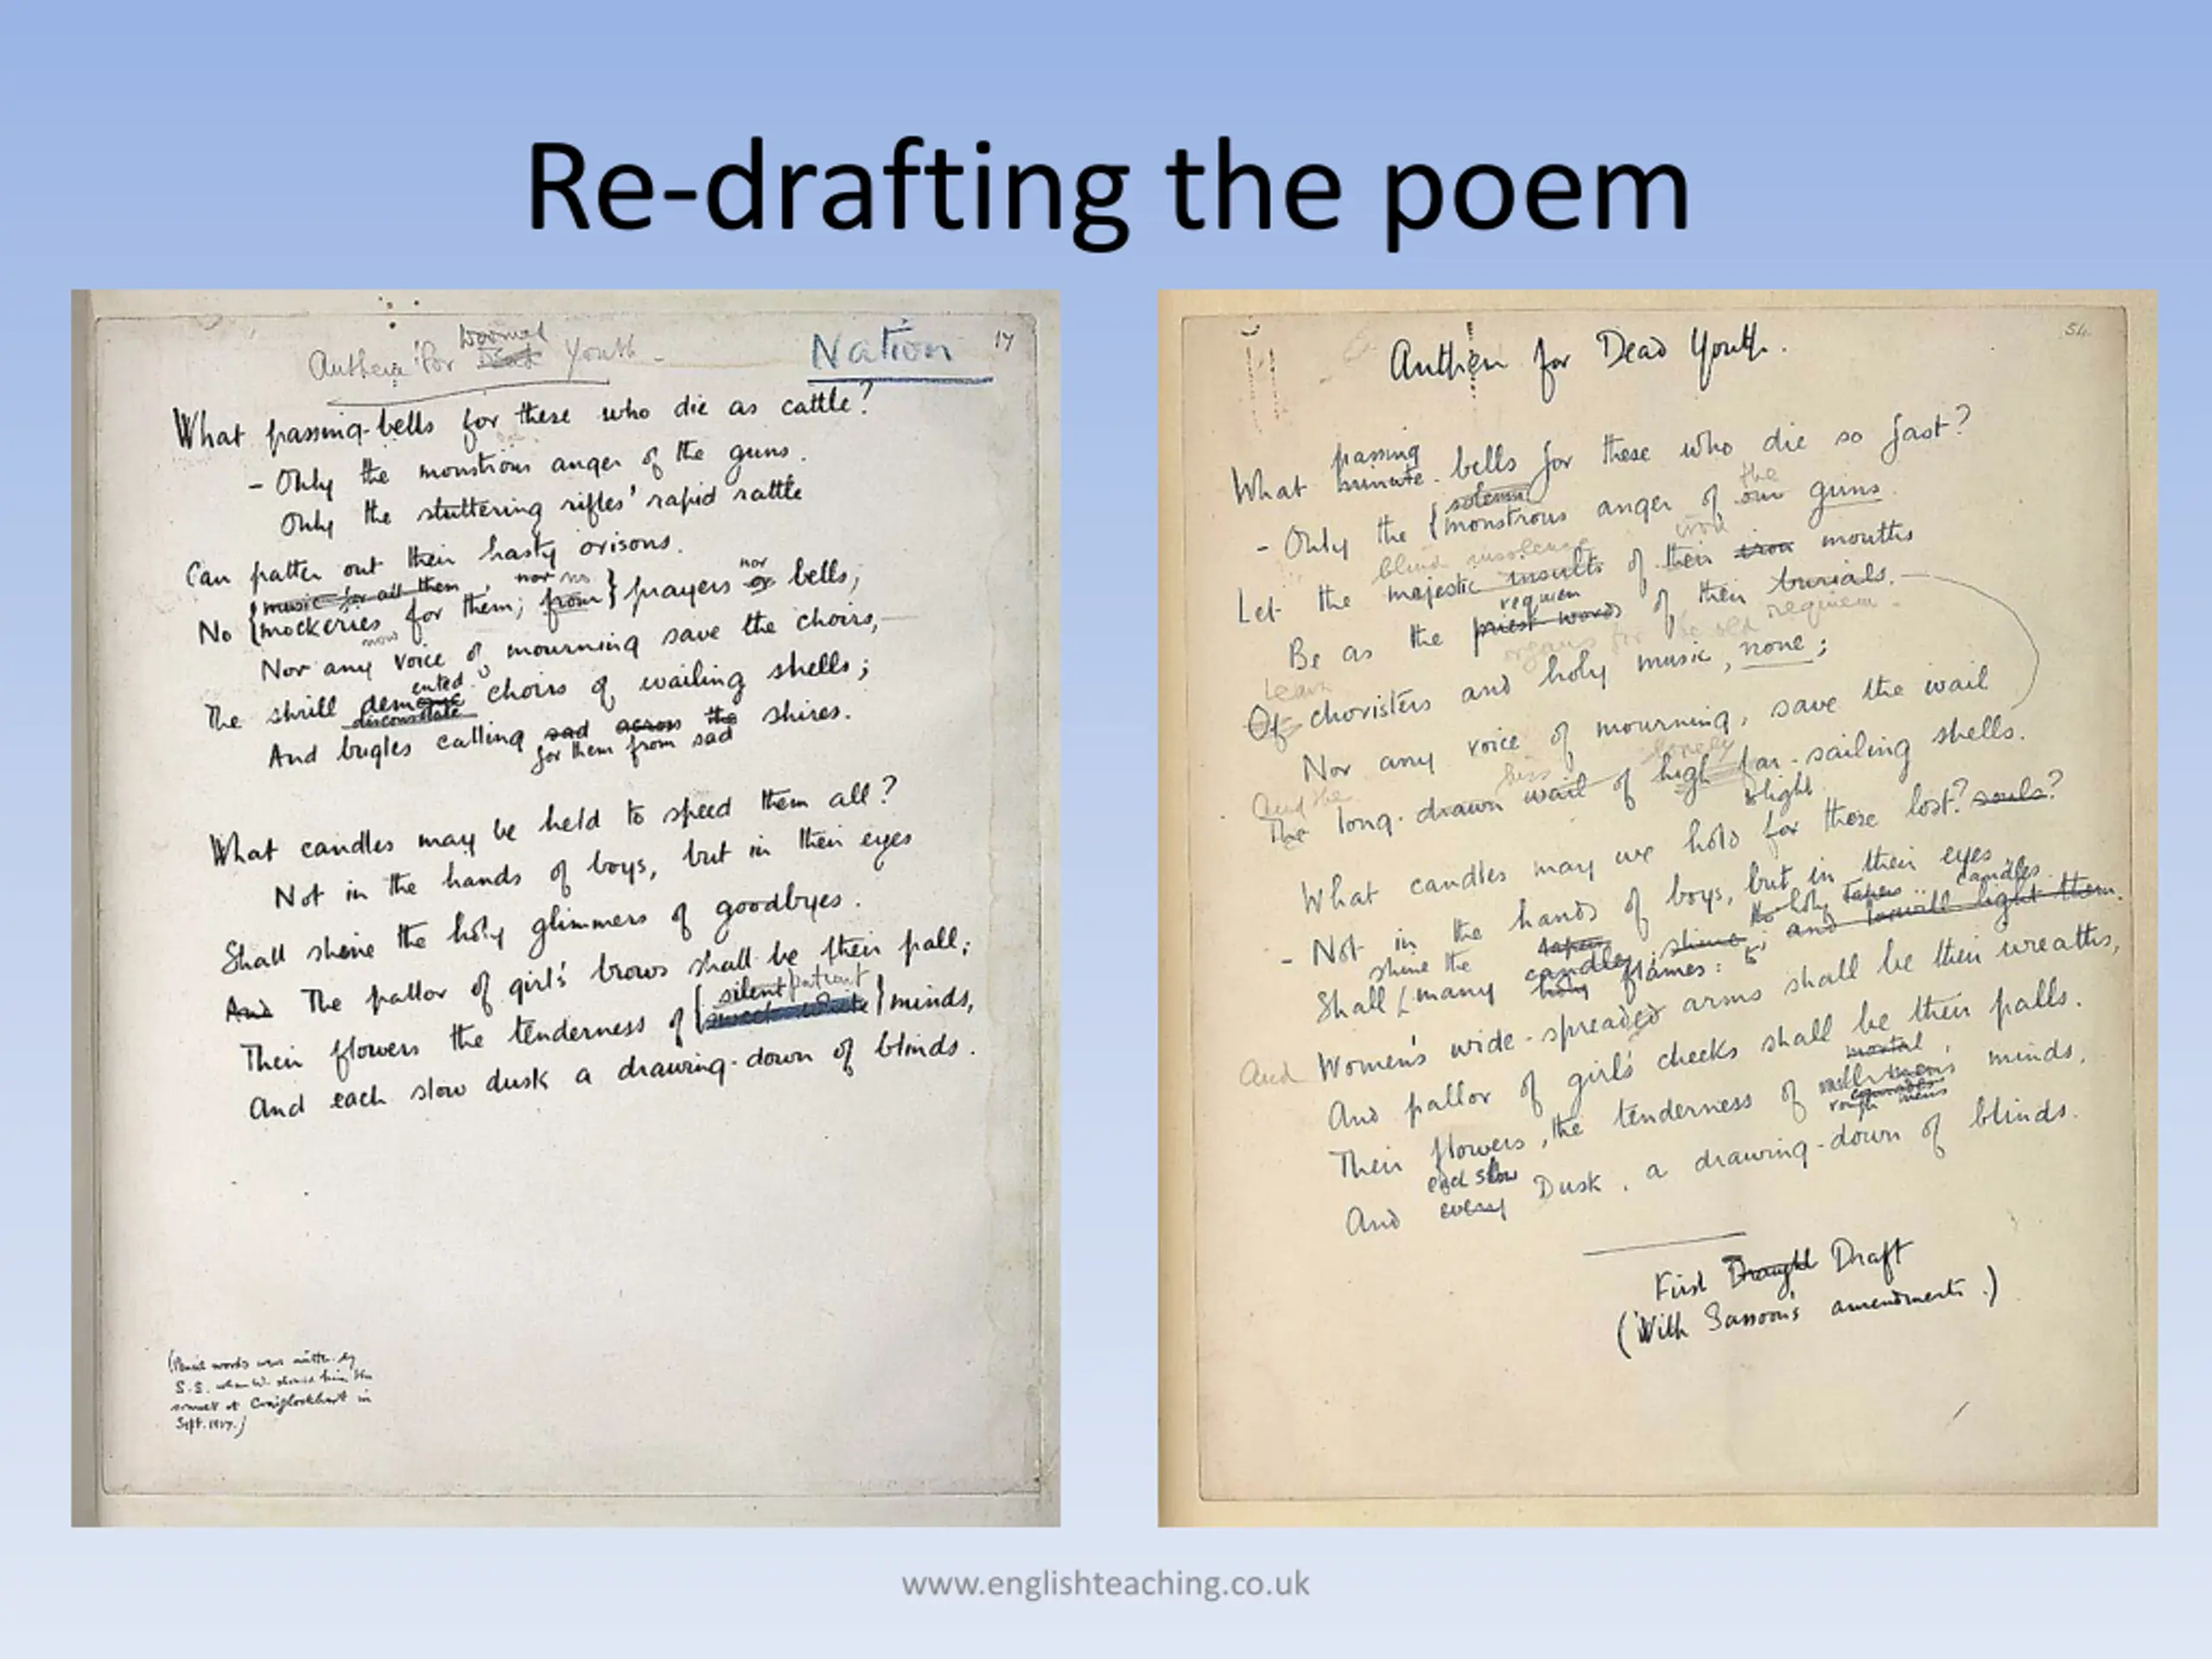 Re-drafting the poem
Doomed
Anthem for Dead Youth -
Nation
17
What passing-bells for these who die as cattle?
- Only the monstrous anger of the guns.
Only the stuttering rifles' rapid rattle
Can patter out their hasty orisons.
music for all them, nor no nor
No mockeries for them; from prayers or bells,
now
Nor any voice of mourning save the choirs,—
ented
The shrill demonic choirs of wailing shells;
disconsolate
And bugles calling sad across the shires.
for them from sad
What candles may be held to speed them all?
Not in the hands of boys, but in their eyes
Shall shine the holy glimmers of goodbyes.
And The pallor of girls' brows shall be their pall;
silent patient
Their flowers the tenderness of sweet white minds,
And each slow dusk a drawing-down of blinds.
(Pencil words were written by
S.S. when W. showed him the
sonnet at Craiglockhart in
Sept. 1917.)
54.
Anthem for Dead Youth.
passing
What minute-bells for these who die so fast?
solemn the
- Only the monstrous anger of our guns.
blind insolence iron
Let the majestic insults of their iron mouths
requiem
Be as the priest words of their burials.
organs for the old requiem
Learn
Of choristers and holy music, none;
Nor any voice of mourning, save the wail
And the hiss lonely
The long-drawn wail of high far-sailing shells.
light
What candles may we hold for these lost? souls?
- Not in the hands of boys, but in their eyes
shine the taper shine holy tapers candles. and will light them.
Shall many candles holy flames:
And Women's wide-spreaded arms shall be their wreaths,
And pallor of girls' cheeks shall be their palls.
mortal
Their flowers, the tenderness of all men's minds,
comrades
rough men's
each slow
And every Dusk, a drawing-down of blinds.
First Draught Draft
(With Sassoon's amendments.)
www.englishteaching.co.uk